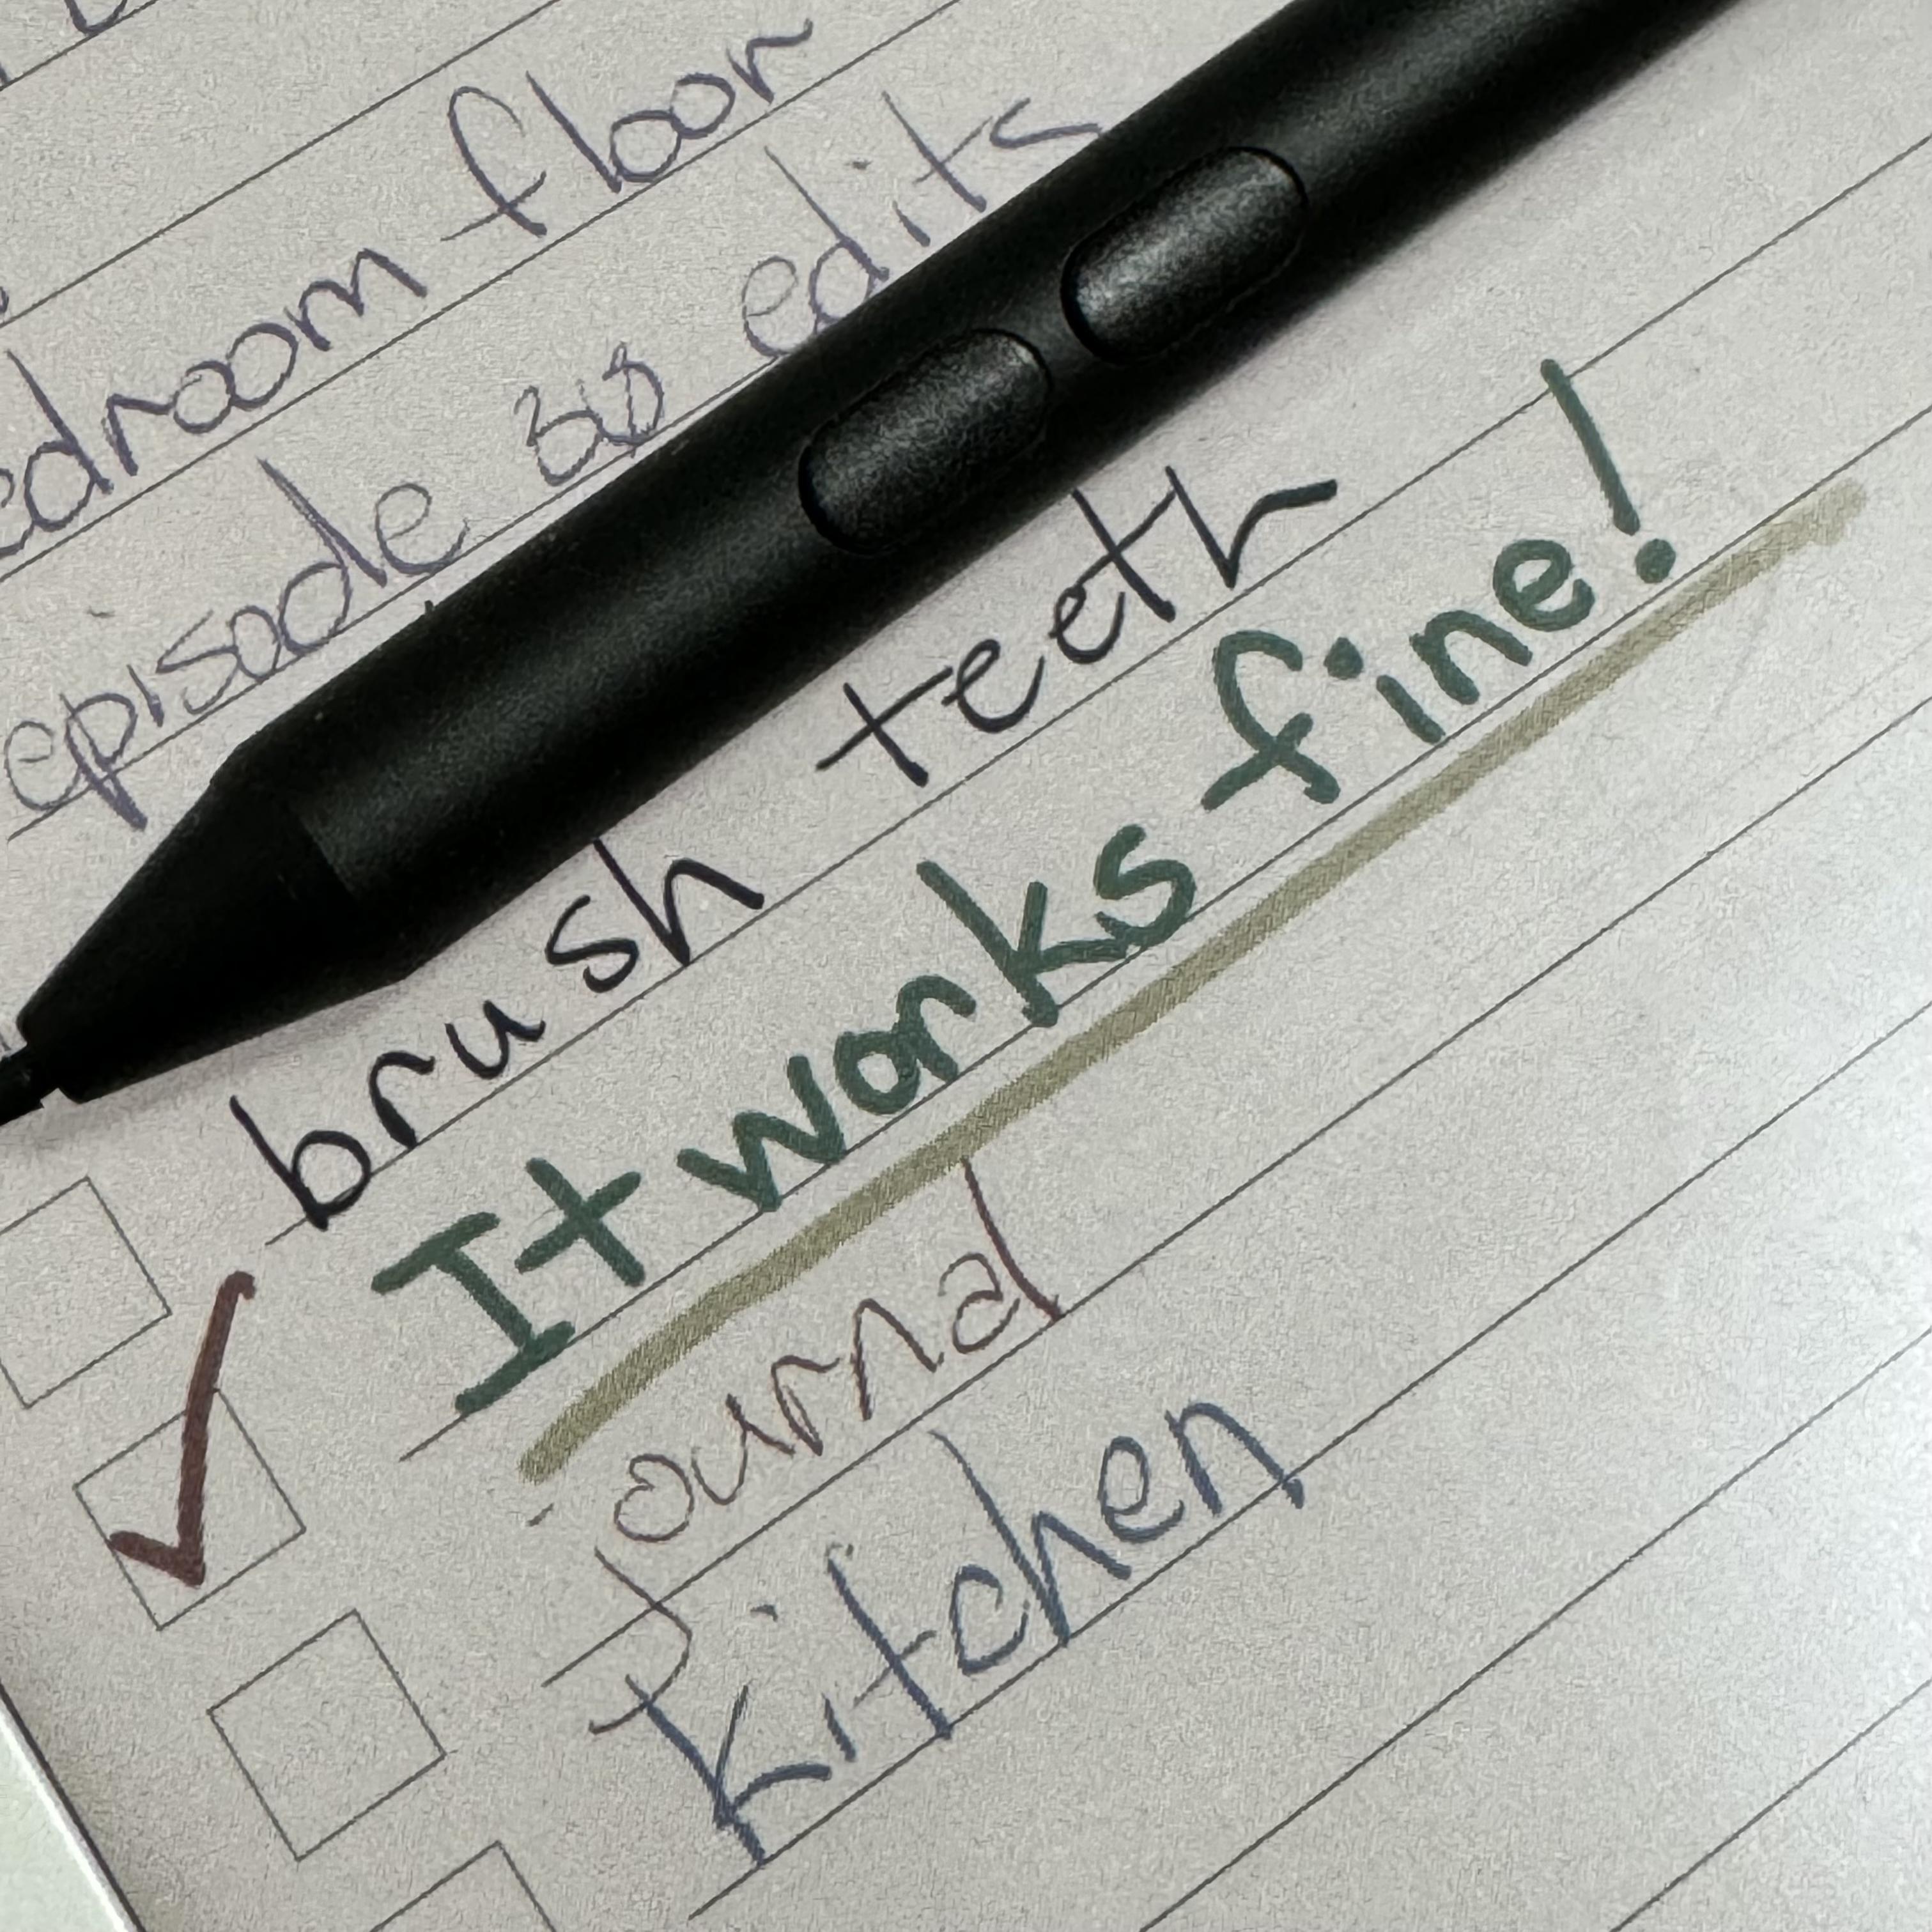 edroom floor
episode edits
brush teeth
It works fine!
journal
kitchen